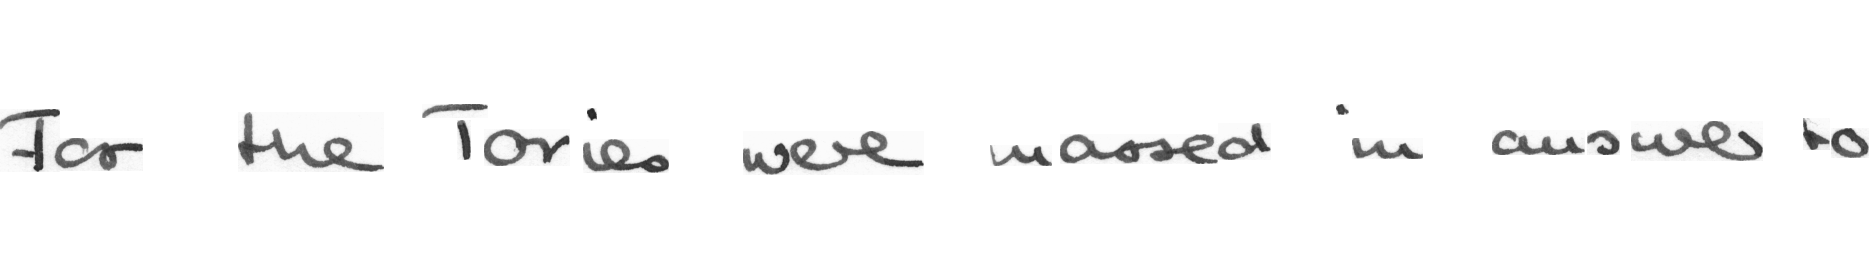 For the Tories were massed in answer to